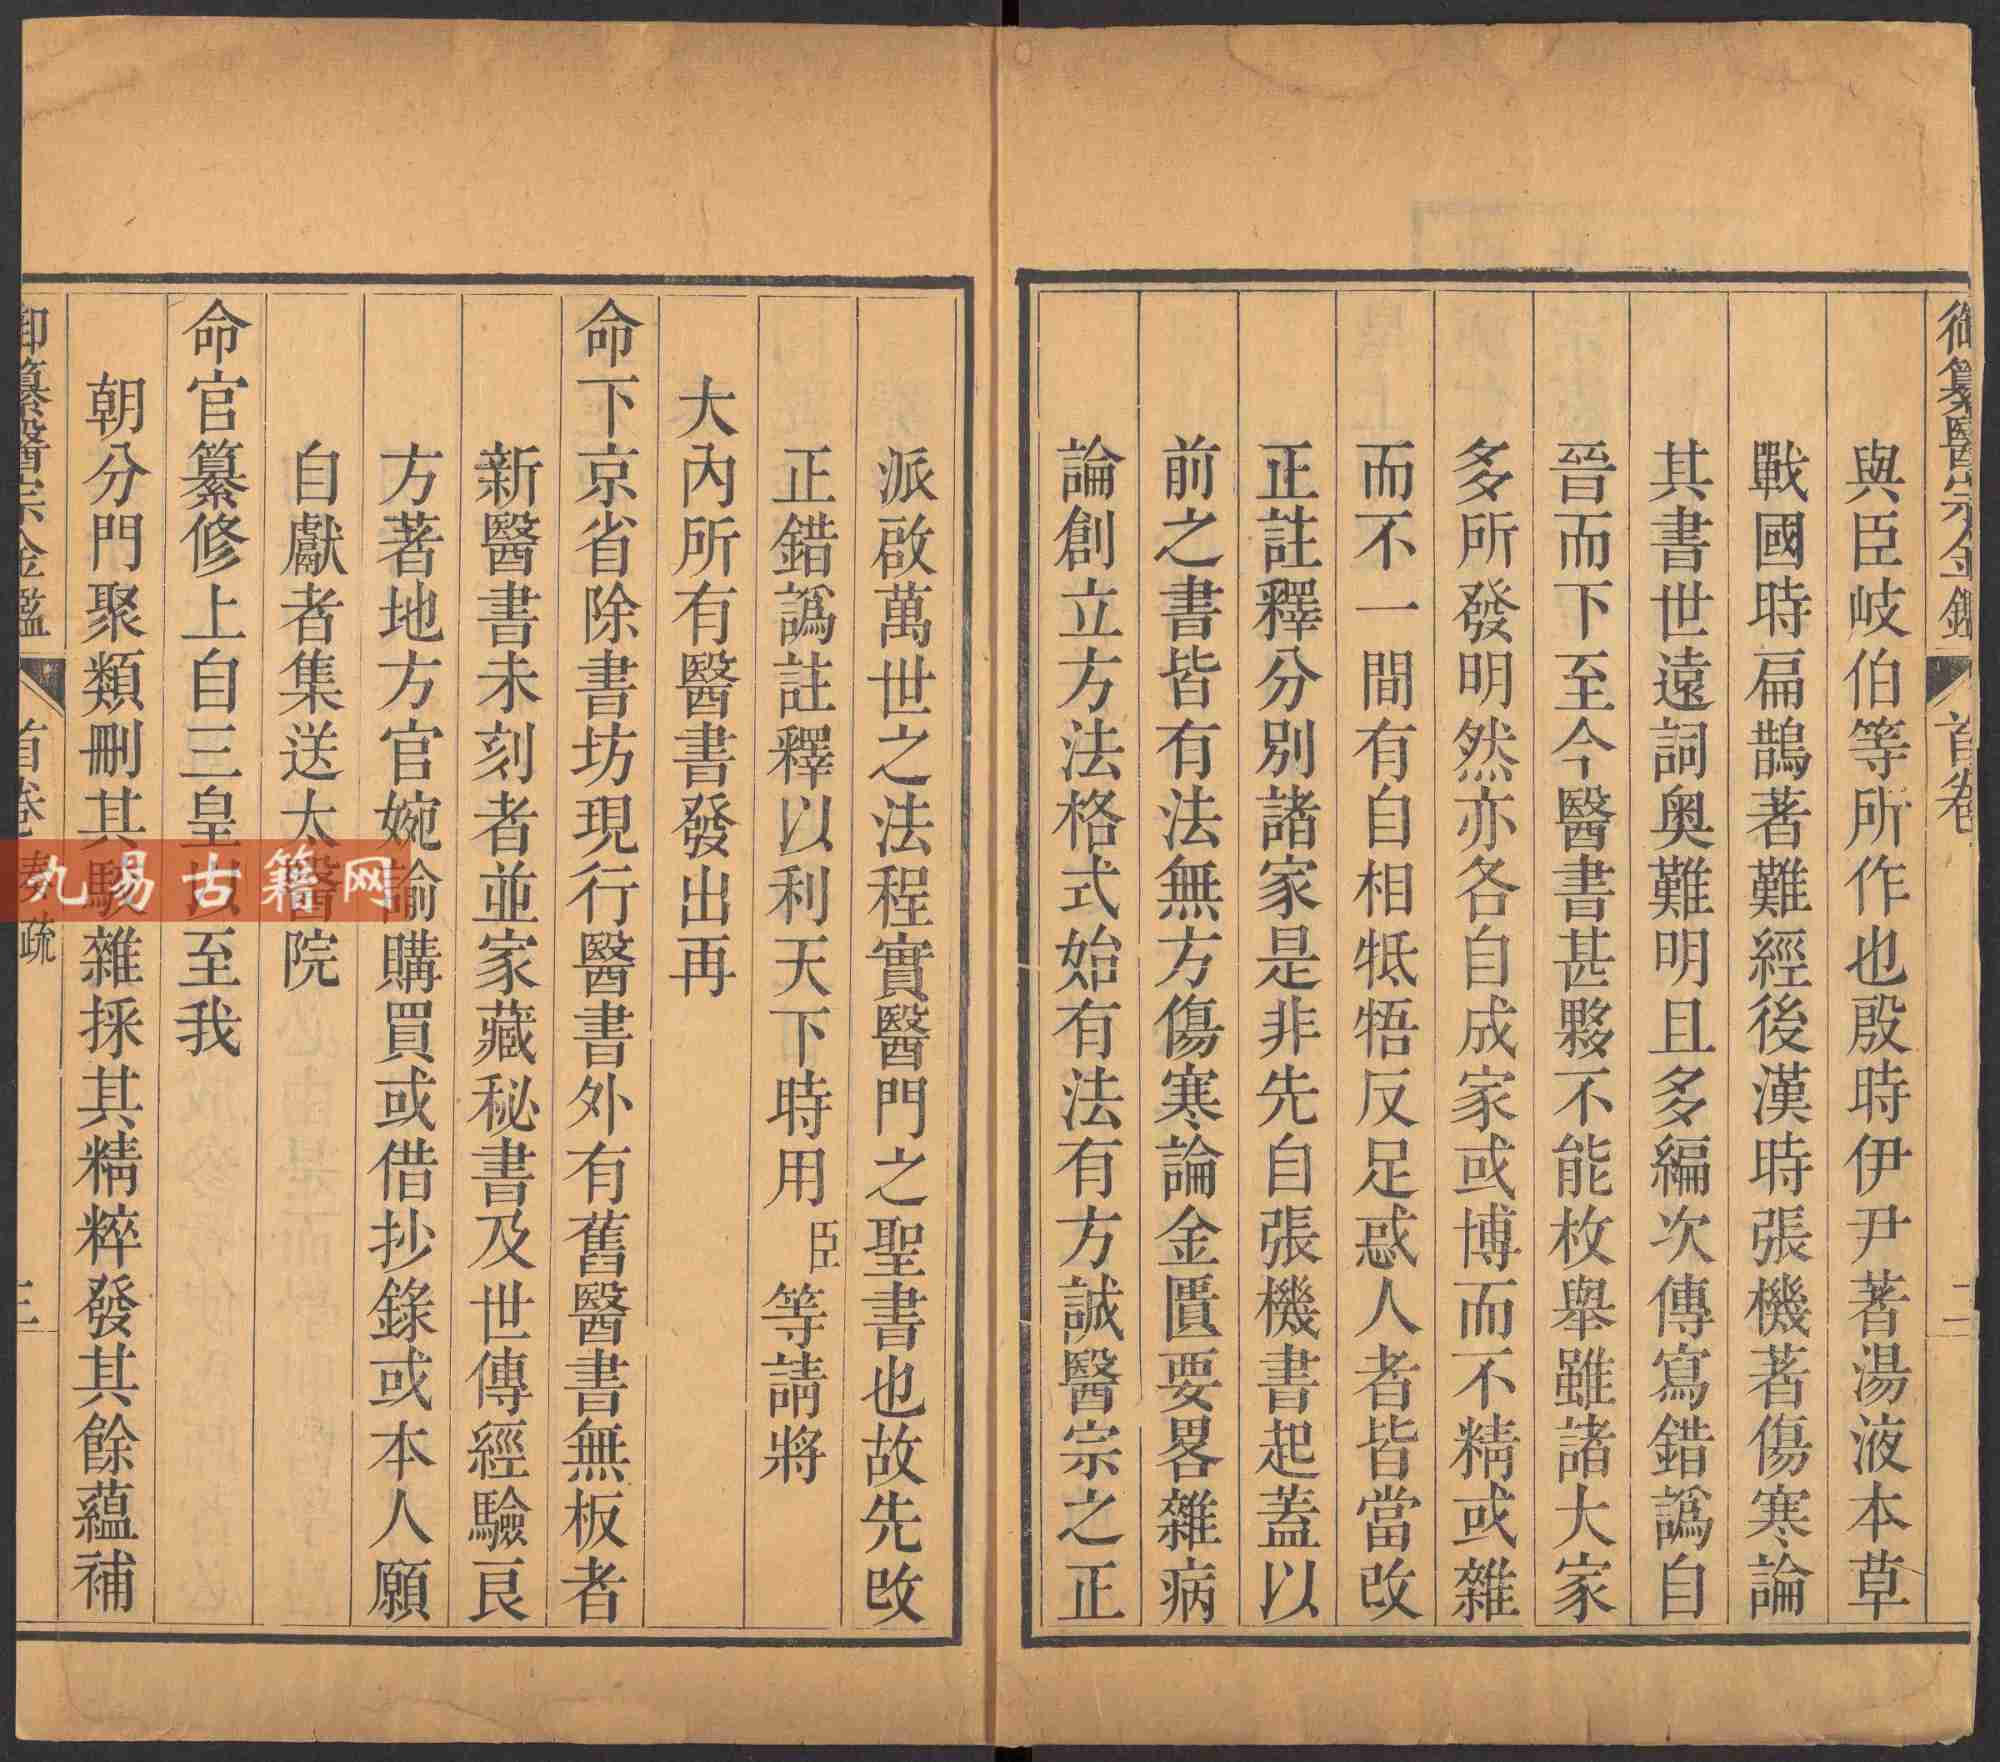 御纂醫宗金鑑 首卷 二
與臣岐伯等所作也殷時伊尹著湯液本草
戰國時扁鵲著難經後漢時張機著傷寒論
其書世遠詞奧難明且多編次傳寫錯譌自
晉而下至今醫書甚夥不能枚舉雖諸大家
多所發明然亦各自成家或博而不精或雜
而不一間有自相牴牾反足惑人者皆當改
正註釋分別諸家是非先自張機書起蓋以
前之書皆有法無方傷寒論金匱要畧雜病
論創立方法格式始有法有方誠醫宗之正
派啟萬世之法程實醫門之聖書也故先改
正錯譌註釋以利天下時用臣等請將
大內所有醫書發出再
命下京省除書坊現行醫書外有舊醫書無板者
新醫書未刻者並家藏秘書及世傳經驗良
方著地方官婉諭購買或借抄錄或本人願
自獻者集送太醫院
命官纂修上自三皇以至我
朝分門聚類刪其駁雜採其精粹發其餘蘊補
御纂醫宗金鑑 首卷 奏疏 三
九易古籍网